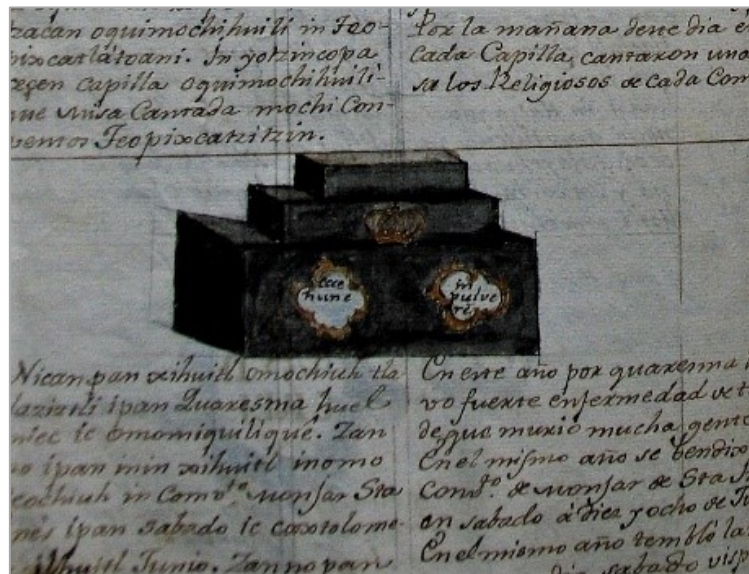 zacan oquimochihuili in Teo-
pixcatlátoani. In yohzincopa
zeçen capilla oquimochihuili-
que Missa Cantada mochi Con-
ventos Teopixcatzitzin.
Por la mañana deste dia e
cada Capilla, cantaron una
sa los Religiosos de cada Con
ecce
hunc
in
pulve
re
Nican pan xihuitl omochiuh tla
ipan Quaresma huel
miec ic omomiquilique. Zan
no ipan inin xihuitl inomo
teochiuh in Comv.to Monjas Sta
nes ipan Sabado ic caxtolome-
ilhuitl Junio. Zan no pan
En este año por quaresma
vo fuerte enfermedad de t
de que murió mucha gente
En el mismo año se bendix
Conv.to de Monjas de Sta
en sabado á diez y ocho de
En el mismo año tembló la
dia sabado visp